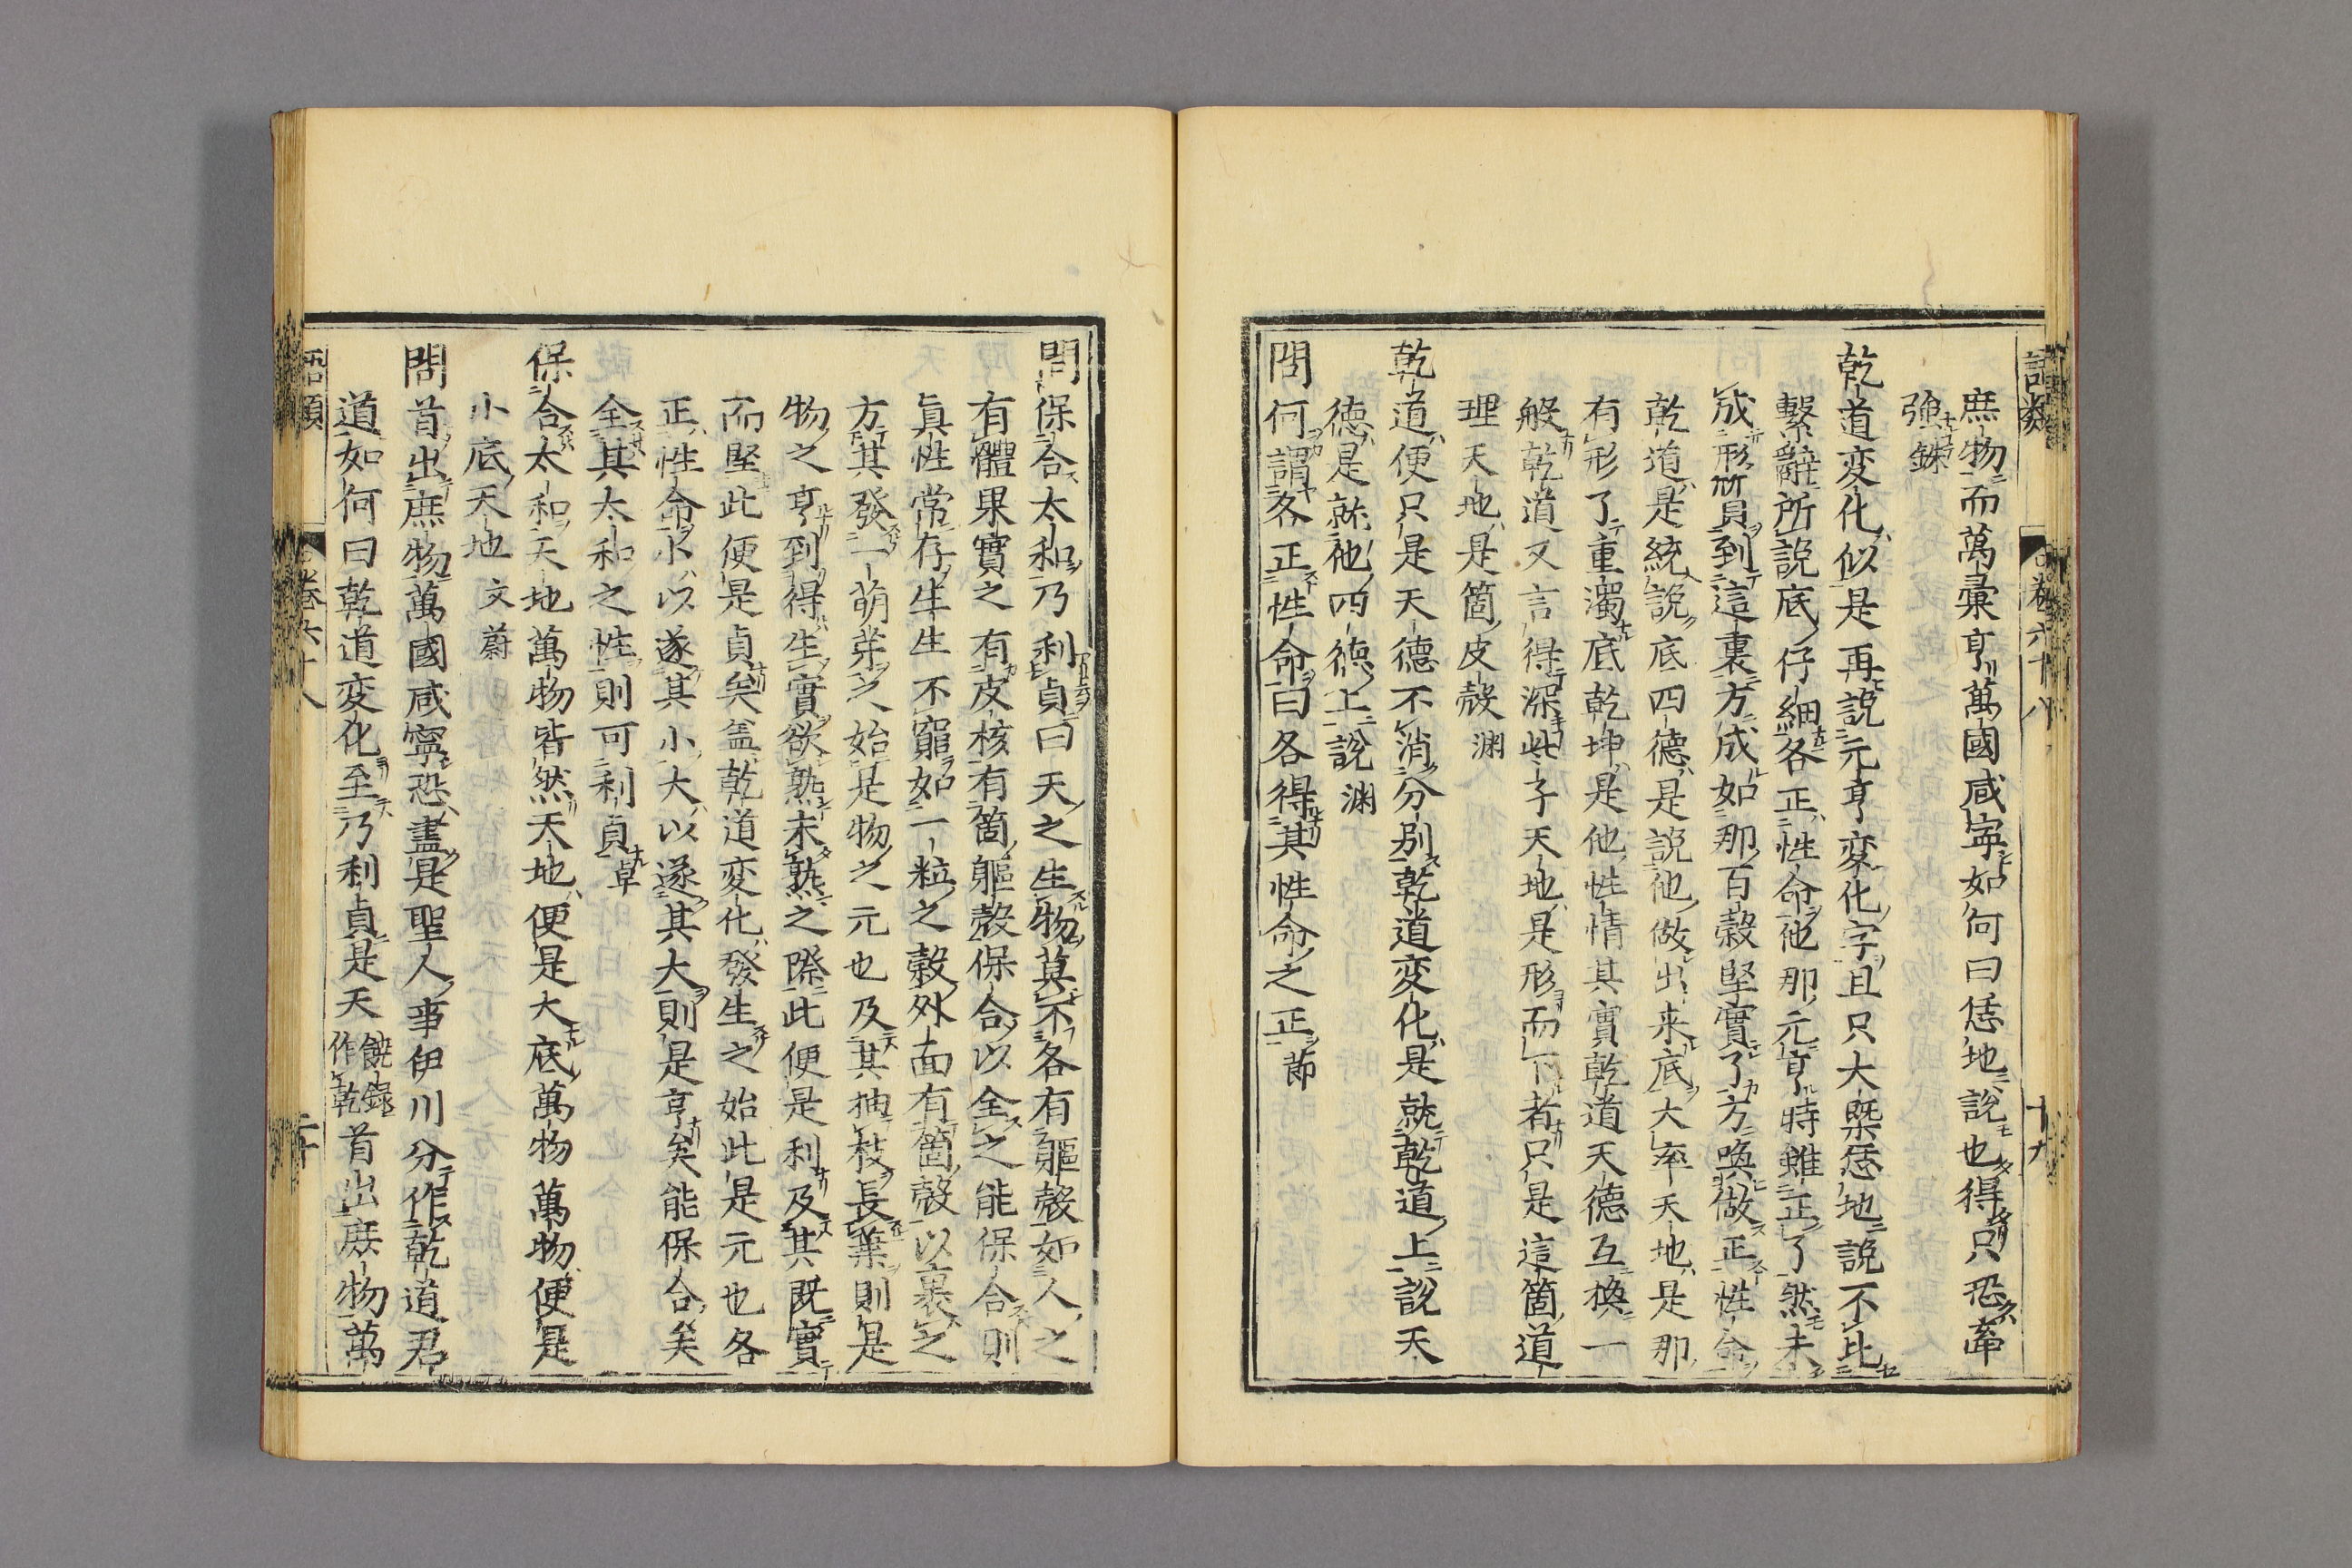 語類 卷六十八 十九
庶物而萬彙亨萬國咸寧如何曰恁地說也得只恐牽
強銖
乾道変化似是再說元亨変化字且只大槩恁地說不比
繫辭所說底仔細各正性命他那元亨時雖正了然未
成形質到這裏方成如那百穀堅實了方喚做正性命
乾道是統說底四德是說他做出来底大率天地是那
有形了重濁底乾坤是他性情其實乾道天德互換一
般乾道又言得深些子天地是形而下者只是這箇道
理天地是箇皮殼淵
乾道便只是天德不消分別乾道変化是就乾道上說天
德是就他四德上說淵
問何謂各正性命曰各得其性命之正節
問保合太和乃利貞曰天之生物莫不各有軀殼如人之
有體果實之有皮核有箇軀殼保合以全之能保合則
眞性常存生生不窮如一粒之穀外面有箇殼以裹之
方其發一萌芽之始是物之元也及其抽枝長葉則是
物之亨到得生實欲熟未熟之際此便是利及其既實
而堅此便是貞矣盖乾道変化發生之始此是元也各
正性命小以遂其小大以遂其大則是亨矣能保合矣
全其太和之性則可利貞卓
保合太和天地萬物皆然天地便是大底萬物萬物便是
小底天地文蔚
問首出庶物萬國咸寧恐盡是聖人事伊川分作乾道君
道如何曰乾道変化至乃利貞是天饒録作乾首出庶物萬
語類 卷六十八 二十